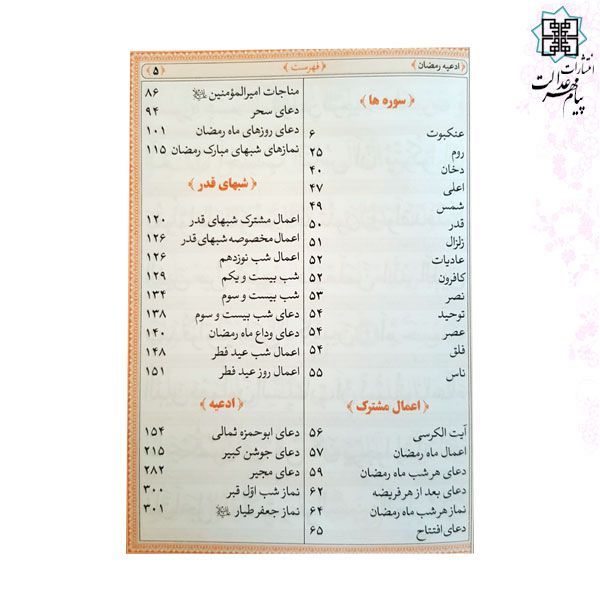 انتشارات
پیام مهر عدالت
ادعیه رمضان
فهرست
۵
سوره ها
عنکبوت ۶
روم ۲۵
دخان ۴۰
اعلی ۴۷
شمس ۴۹
قدر ۵۰
زلزال ۵۱
عادیات ۵۲
کافرون ۵۲
نصر ۵۳
توحید ۵۴
عصر ۵۴
فلق ۵۴
ناس ۵۵
اعمال مشترک
آیت الکرسی ۵۶
اعمال ماه رمضان ۵۷
دعای هر شب ماه رمضان ۵۹
دعای بعد از هر فریضه ۶۲
نماز هر شب ماه رمضان ۶۴
دعای افتتاح ۶۵
مناجات امیرالمؤمنین ۸۶
دعای سحر ۹۴
دعای روزهای ماه رمضان ۱۰۱
نمازهای شبهای مبارک رمضان ۱۱۵
شبهای قدر
اعمال مشترک شبهای قدر ۱۲۰
اعمال مخصوصه شبهای قدر ۱۲۶
اعمال شب نوزدهم ۱۲۶
شب بیست و یکم ۱۲۹
شب بیست و سوم ۱۳۴
دعای شب بیست و سوم ۱۳۸
دعای وداع ماه رمضان ۱۴۰
اعمال شب عید فطر ۱۴۸
اعمال روز عید فطر ۱۵۱
ادعیه
دعای ابوحمزه ثمالی ۱۵۴
دعای جوشن کبیر ۲۱۵
دعای مجیر ۲۸۲
نماز شب اوّل قبر ۳۰۰
نماز جعفر طیار ۳۰۱